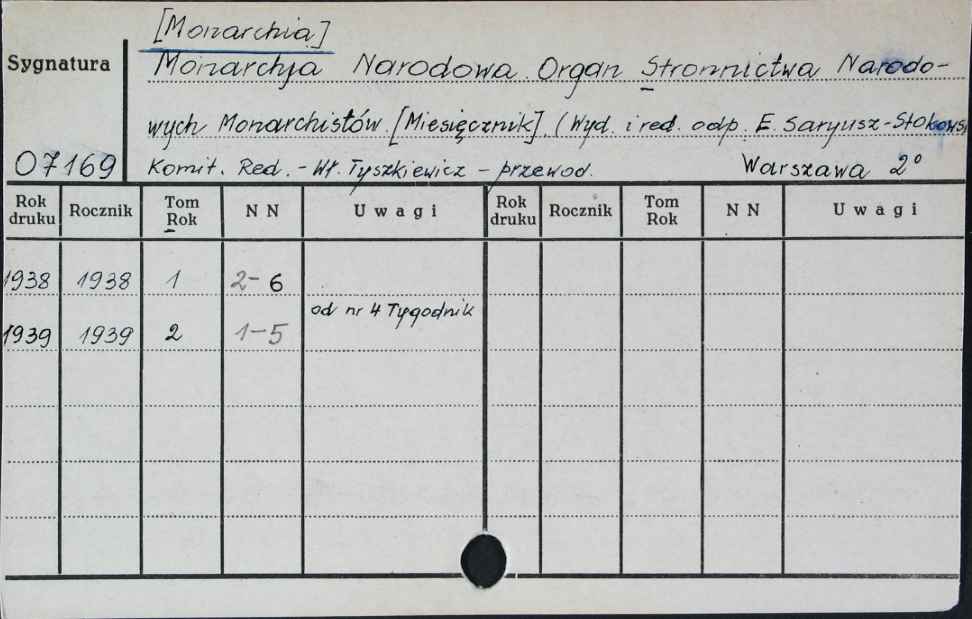 [Monarchia]
Sygnatura
Monarchja Narodowa. Organ Stronnictwa Narodo-
wych Monarchistów. [Miesięcznik]. (Wyd. i red. odp. E. Saryusz-Stokowsk
07169 Komit. Red. - Wł. Tyszkiewicz - przewod. Warszawa 2°
Rok druku Rocznik Tom Rok N N Uwagi Rok druku Rocznik Tom Rok N N Uwagi
1938 1938 1 2-6
od nr 4 Tygodnik
1939 1939 2 1-5